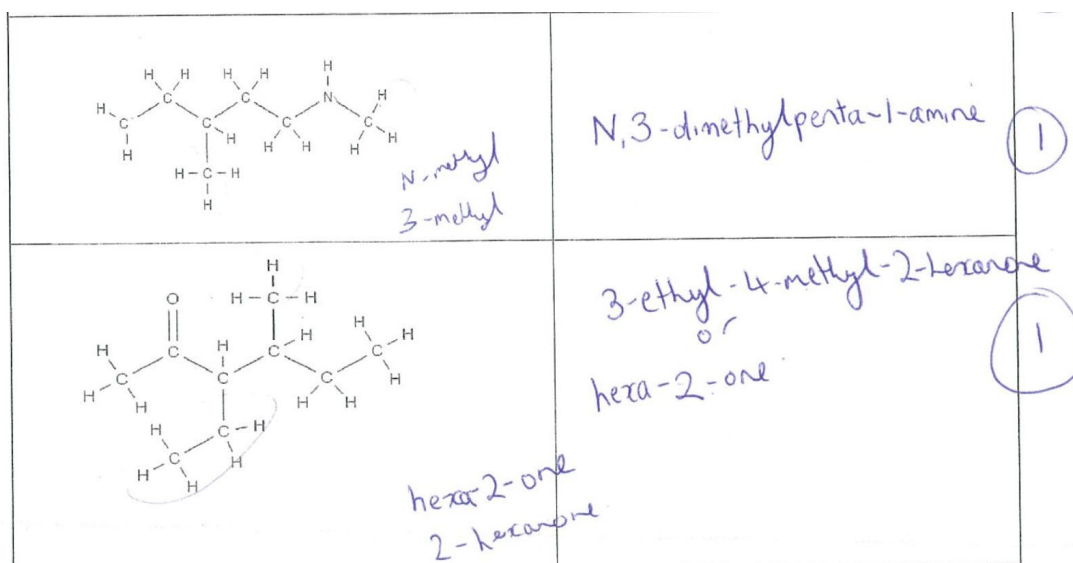 N-methyl
3-methyl
N,3-dimethylpenta-1-amine
1
3-ethyl-4-methyl-2-hexanone
or
hexa-2-one
1
hexa-2-one
2-hexanone